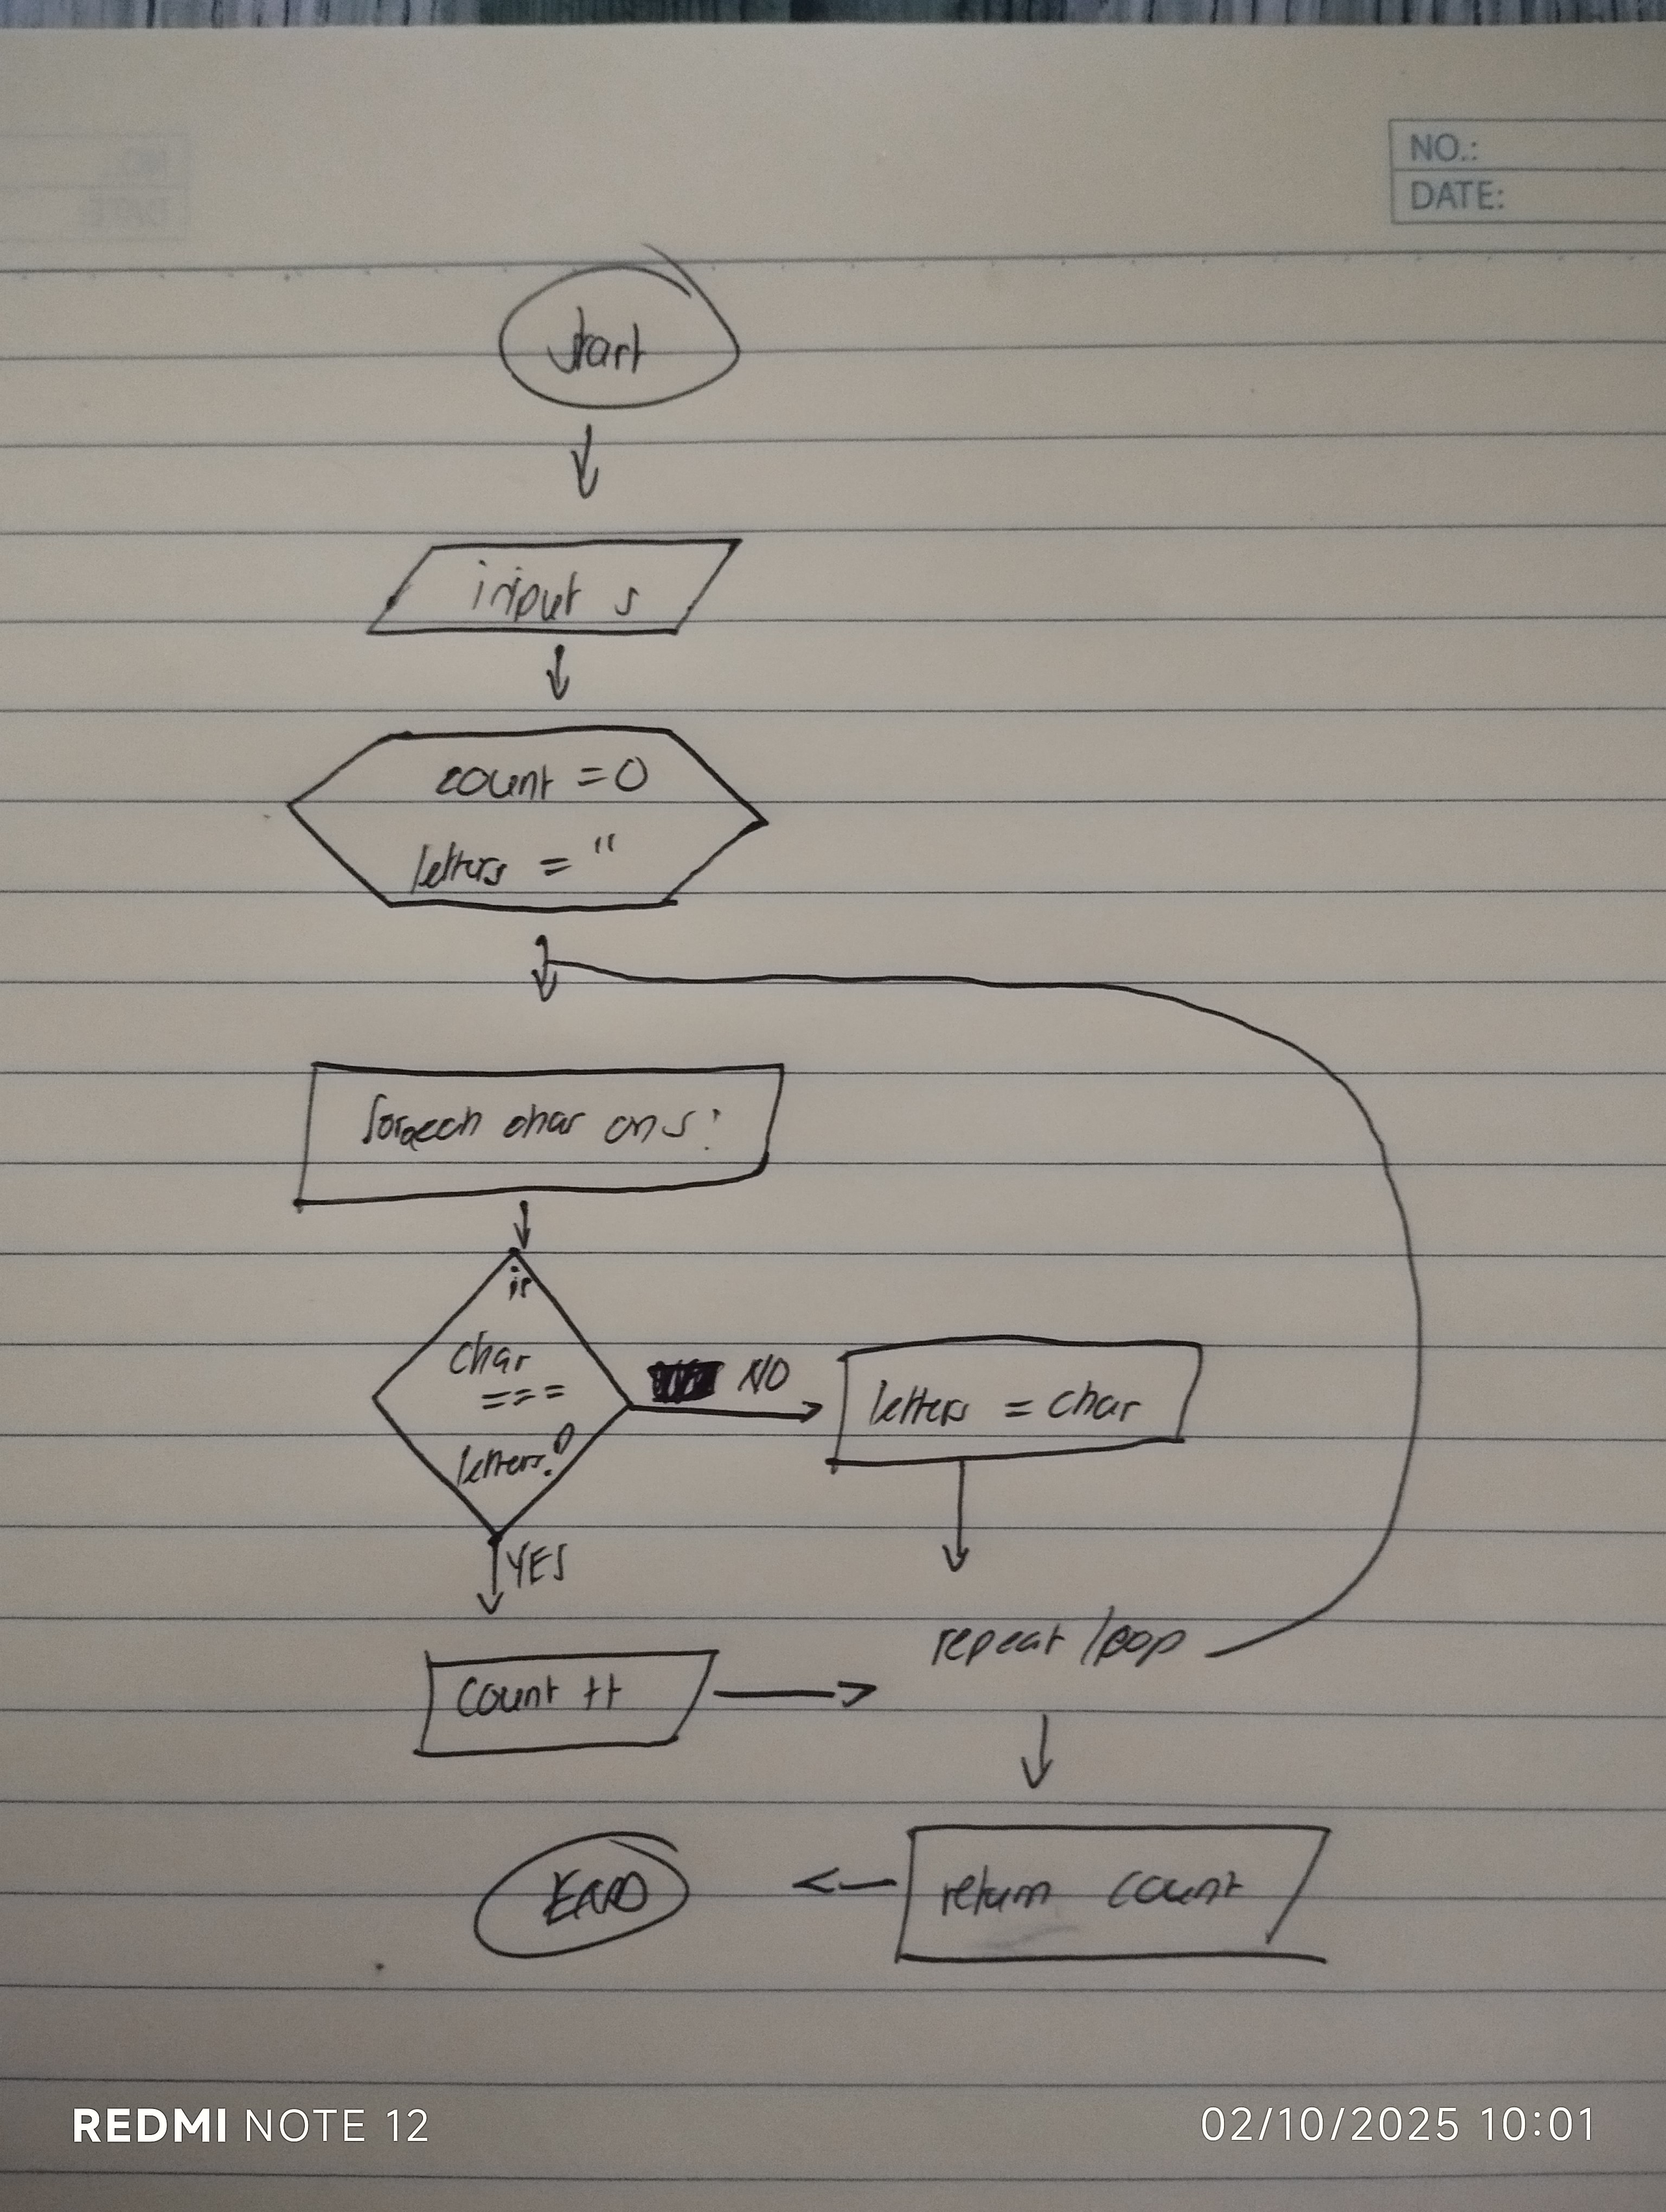 NO.:
DATE:
start
input s
count = 0
letters = ''
foreach char on s:
if
char
===
letters?
NO
letters = char
YES
repeat loop
count ++
return count
END
REDMI NOTE 12
02/10/2025 10:01